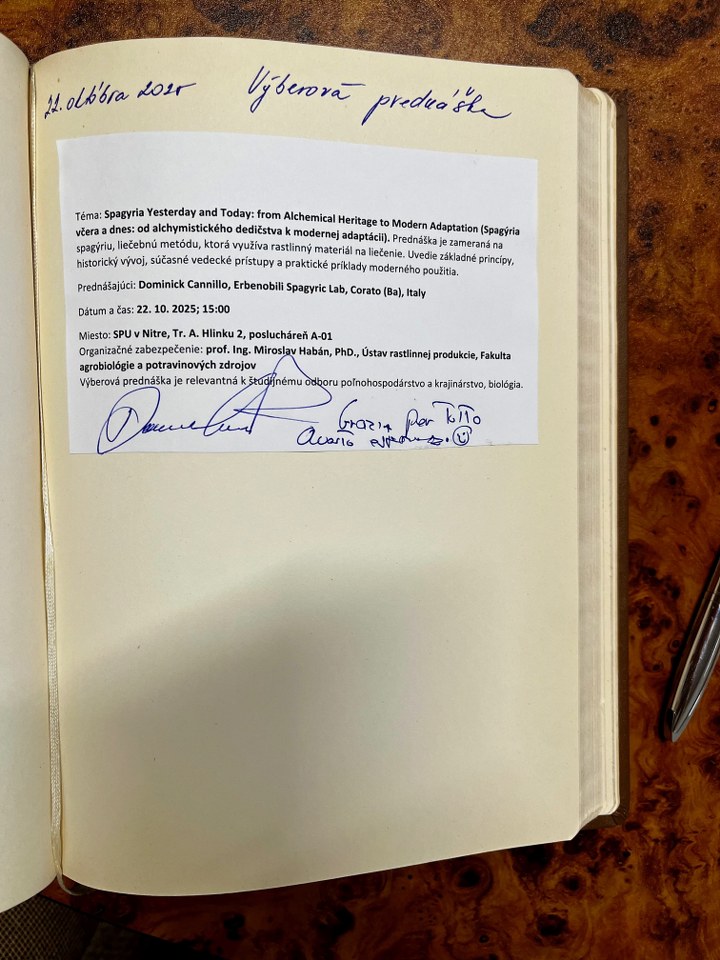 22. októbra 2025 Výberová prednáška
Téma: Spagyria Yesterday and Today: from Alchemical Heritage to Modern Adaptation (Spagýria
včera a dnes: od alchymistického dedičstva k modernej adaptácii). Prednáška je zameraná na
spagýriu, liečebnú metódu, ktorá využíva rastlinný materiál na liečenie. Uvedie základné princípy,
historický vývoj, súčasné vedecké prístupy a praktické príklady moderného použitia.
Prednášajúci: Dominick Cannillo, Erbenobili Spagyric Lab, Corato (Ba), Italy
Dátum a čas: 22. 10. 2025; 15:00
Miesto: SPU v Nitre, Tr. A. Hlinku 2, poslucháreň A-01
Organizačné zabezpečenie: prof. Ing. Miroslav Habán, PhD., Ústav rastlinnej produkcie, Fakulta
agrobiológie a potravinových zdrojov
Výberová prednáška je relevantná k študijnému odboru poľnohospodárstvo a krajinárstvo, biológia.
Grazie per tutto